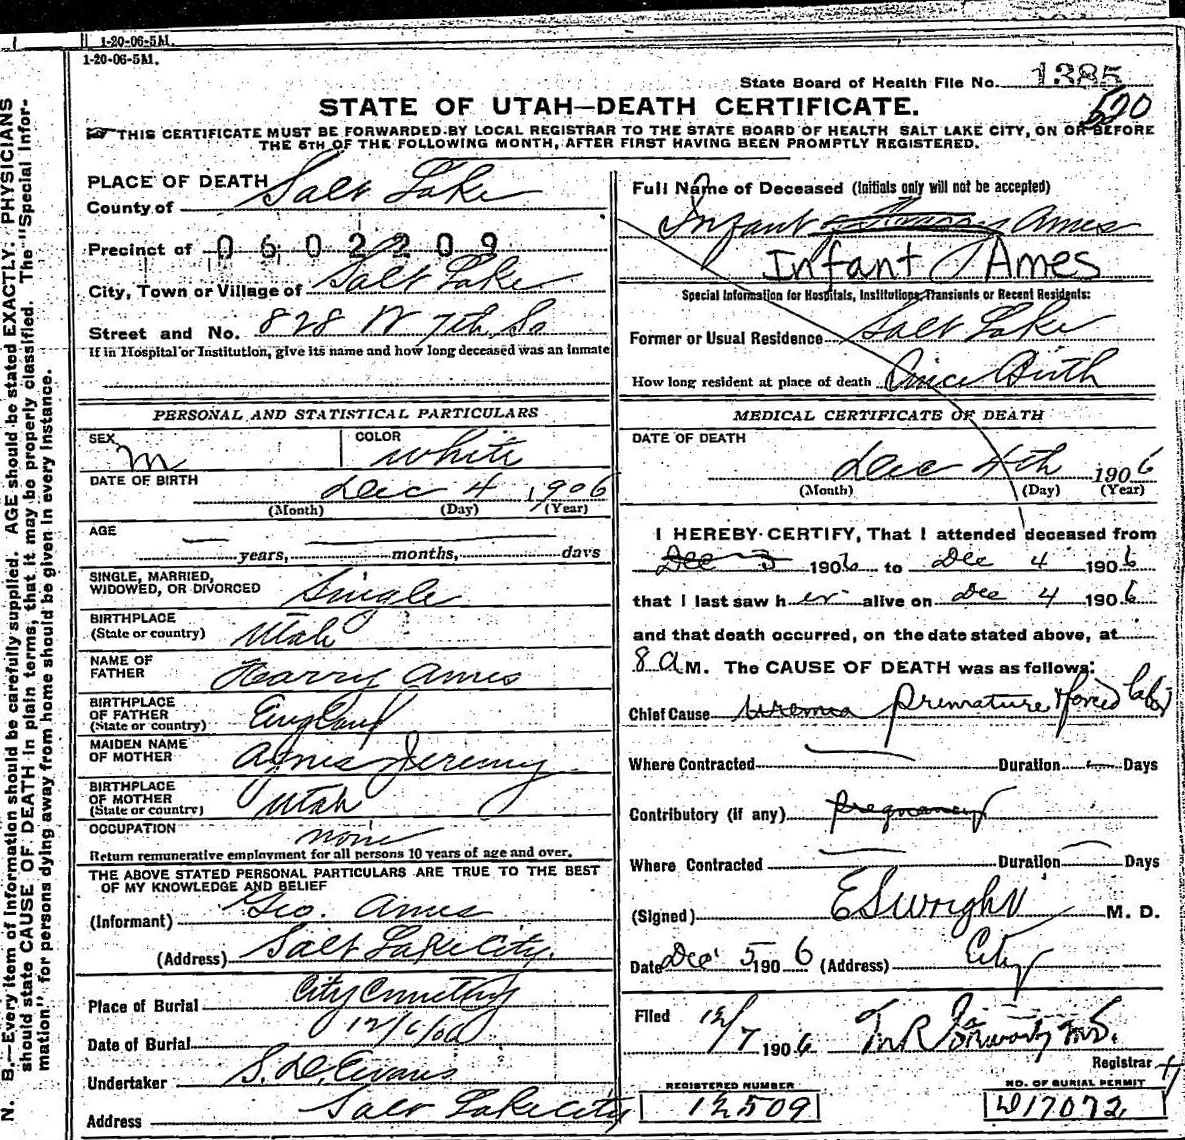 1-20-06-5M.
1-20-06-5M.
State Board of Health File No. 1385
STATE OF UTAH—DEATH CERTIFICATE.
520
THIS CERTIFICATE MUST BE FORWARDED BY LOCAL REGISTRAR TO THE STATE BOARD OF HEALTH SALT LAKE CITY, ON OR BEFORE
THE 5TH OF THE FOLLOWING MONTH, AFTER FIRST HAVING BEEN PROMPTLY REGISTERED.
N. B.—Every item of information should be carefully supplied. AGE should be stated EXACTLY. PHYSICIANS
should state CAUSE OF DEATH in plain terms, that it may be properly classified. The "Special Infor-
mation" for persons dying away from home should be given in every instance.
PLACE OF DEATH
County of Salt Lake
Precinct of 0602209
City, Town or Village of Salt Lake
Street and No. 828 W 7th So
If in Hospital or Institution, give its name and how long deceased was an inmate
PERSONAL AND STATISTICAL PARTICULARS
SEX m COLOR white
DATE OF BIRTH Dec 4 1906
(Month) (Day) (Year)
AGE
years, months, days
SINGLE, MARRIED,
WIDOWED, OR DIVORCED Single
BIRTHPLACE
(State or country) Utah
NAME OF
FATHER Harry Ames
BIRTHPLACE
OF FATHER
(State or country) England
MAIDEN NAME
OF MOTHER Agnes Jeremy
BIRTHPLACE
OF MOTHER
(State or country) Utah
OCCUPATION none
Return remunerative employment for all persons 10 years of age and over.
THE ABOVE STATED PERSONAL PARTICULARS ARE TRUE TO THE BEST
OF MY KNOWLEDGE AND BELIEF
(Informant) Geo. Ames
(Address) Salt Lake City.
Place of Burial City Cemetery
Date of Burial 12/6/06
Undertaker S. D. Evans
Address Salt Lake City
Full Name of Deceased (Initials only will not be accepted)
Infant Ames
Infant Ames
Special Information for Hospitals, Institutions, Transients or Recent Residents:
Former or Usual Residence Salt Lake
How long resident at place of death Since Birth
MEDICAL CERTIFICATE OF DEATH
DATE OF DEATH
Dec 4th 1906
(Month) (Day) (Year)
I HEREBY CERTIFY, That I attended deceased from
Dec 3 1906 to Dec 4 1906
that I last saw her alive on Dec 4 1906
and that death occurred, on the date stated above, at
8 a M. The CAUSE OF DEATH was as follows:
Chief Cause Uremia premature & forced labor
Where Contracted Duration Days
Contributory (if any) pregnancy
Where Contracted Duration Days
(Signed) E S Wright M. D.
Date Dec 5 1906 (Address) City
Filed 12/7 1906
Registrar
REGISTERED NUMBER
12509
NO. OF BURIAL PERMIT
D17072